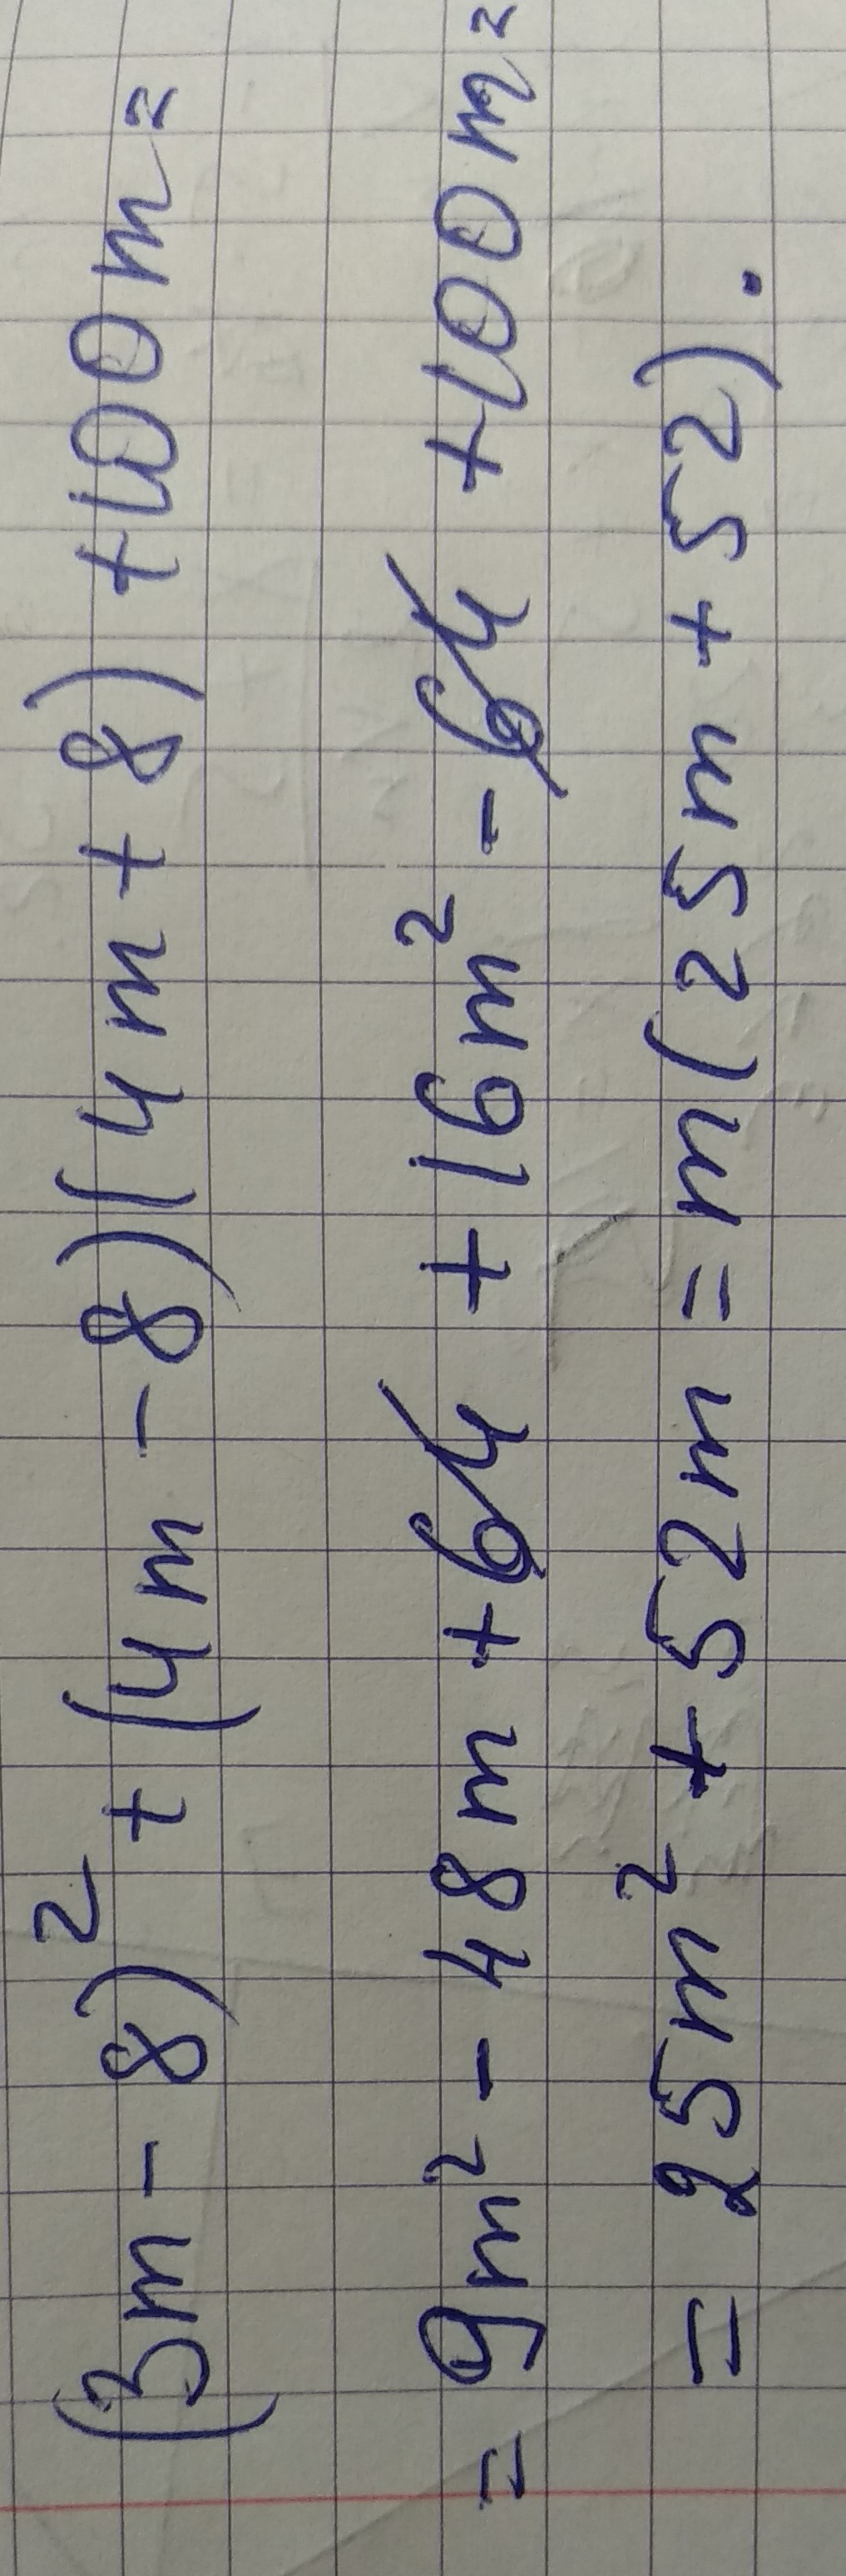 (3m - 8)² + (4m - 8)(4m + 8) + 100m =
= 9m² - 48m + 64 + 16m² - 64 + 100m =
= 25m² + 52m = m(25m + 52).